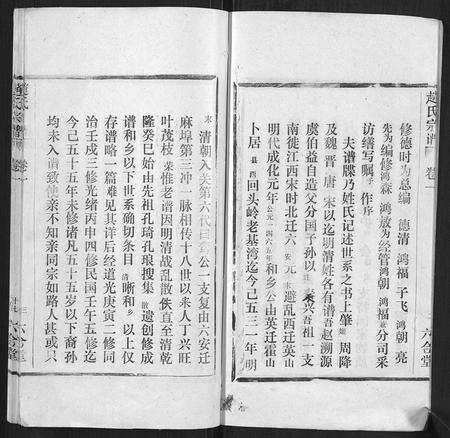 趙氏宗譜 卷一
六合堂
修德时为总编 德清 鸿福 子飞 鸿朝 亮
先为编修 鸿霖 鸿敖为经管 鸿朝 鸿福並分司采
访缮写 嘱 作序
夫谱牒乃姓氏记述世系之书上肇 周降
及魏晋唐宋以迄明清姓各有谱吾赵溯源
虞伯益自造父分国子孙以 兴吾祖一支
南徙江西宋时北迁六 元末避乱西迁英山
明代成化元年 公元一四六五年 和乡公由英迁霍
卜居 县西 回头岭老基湾迄今己五三一年明
末清朝入关第六代 公一支复由六安迁
麻埠第三冲一脉相传十八世以来人丁兴旺
叶茂枝荣惟老谱因明清战乱散佚直至清乾
隆癸巳始由先祖孔琦孔琅搜集散遗创修成
谱和乡以下世系确切条目清晰和乡以上仅
存谱略一篇难见其详后经道光庚寅二修同
治壬戌三修光绪丙申四修民国壬午五修迄
今己五十五年未修诸凡五十五岁以下裔孙
均未入谱致使亲不知亲同宗如路人甚或只
趙氏宗譜 卷一
六合堂